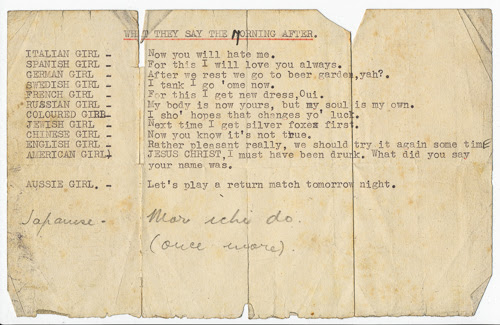 WHAT THEY SAY THE MORNING AFTER.
ITALIAN GIRL - Now you will hate me.
SPANISH GIRL - For this I will love you always.
GERMAN GIRL - After we rest we go to beer garden, yah?.
SWEDISH GIRL - I tank I go 'ome now.
FRENCH GIRL - For this I get new dress, Oui.
RUSSIAN GIRL - My body is now yours, but my soul is my own.
COLOURED GIRL - I sho' hopes that changes yo' luck.
JEWISH GIRL - Next time I get silver foxes first.
CHINESE GIRL - Now you know it's not true.
ENGLISH GIRL - Rather pleasant really, we should try it again some time
AMERICAN GIRL) JESUS CHRIST, I must have been drunk. What did you say
your name was.
AUSSIE GIRL. - Let's play a return match tomorrow night.
Japanese - Mor ichi do.
(once more).